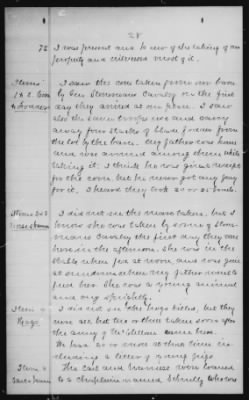 28
75 I was present and to view of the taking of an
property and witnesses most of it.
Item
1 & 2. Corn
& Fodder
I saw the corn taken from our barn
by Gen Stoneman's Cavalry on the first
day they arrived at our place. I saw
also the same troops use and carry
away four stacks of blade fodder from
the lot by the barn. My father was home
and was around among them while
taking it. I think he was given a receipt
for this corn, but he never got any pay
for it. I heard they took 20 or 25 bbls.
Items 2 & 3
I did not see the mare taken, but I
know she was taken by some of Stone-
man's Cavalry the first day they were
here in the afternoon. She was in the
stable when fed at noon and was gone
at sundown when my father went to
feed her. She was a young animal
and very sprightly.
Item
Hogs
I did not see the hogs killed, but they
were all but two or three taken soon after
the army of McClellan came here.
He had 20 or more at that time in-
cluding a litter of young pigs.
Item
The cart and harness were loaned
to a chaplain named who was